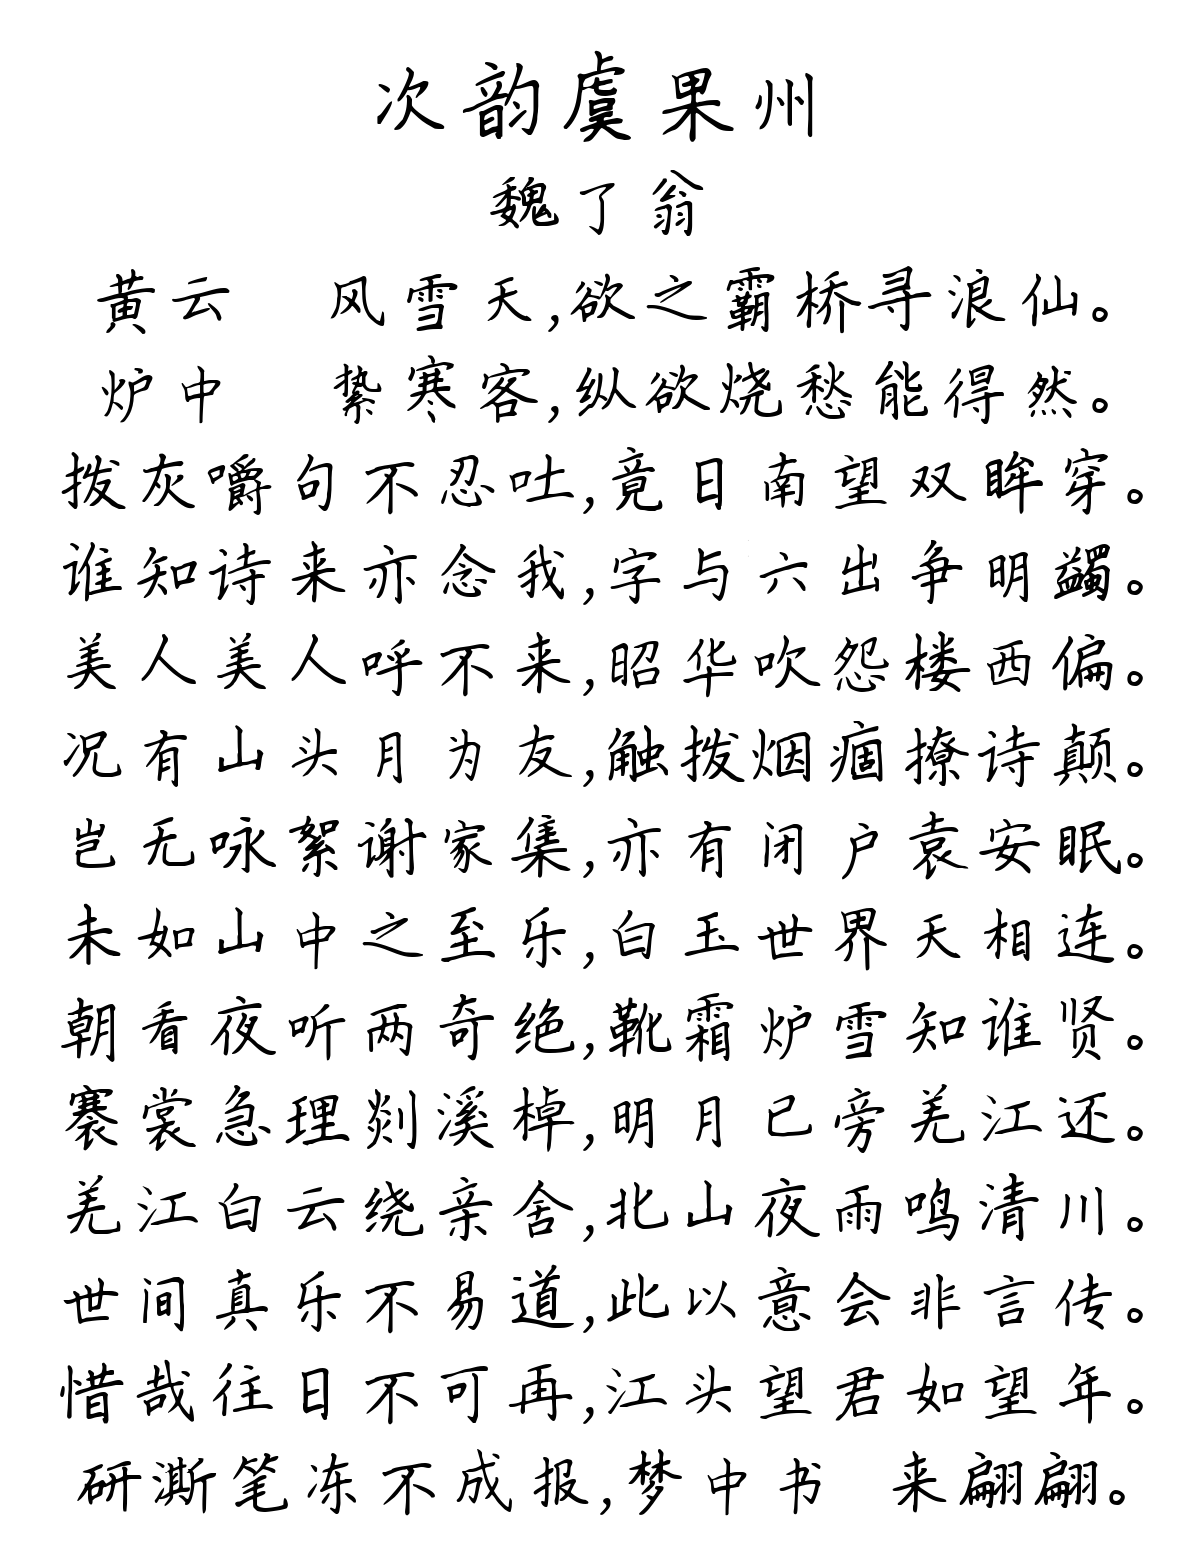 次韵虞果州
魏了翁
黄云 风雪天,欲之霸桥寻浪仙。
炉中 絷寒客,纵欲烧愁能得然。
拨灰嚼句不忍吐,竟日南望双眸穿。
谁知诗来亦念我,字与六出争明蠲。
美人美人呼不来,昭华吹怨楼西偏。
况有山头月为友,触拨烟痼撩诗颠。
岂无咏絮谢家集,亦有闭户袁安眠。
未如山中之至乐,白玉世界天相连。
朝看夜听两奇绝,靴霜炉雪知谁贤。
褰裳急理剡溪棹,明月已旁羌江还。
羌江白云绕亲舍,北山夜雨鸣清川。
世间真乐不易道,此以意会非言传。
惜哉往日不可再,江头望君如望年。
研澌笔冻不成报,梦中书 来翩翩。